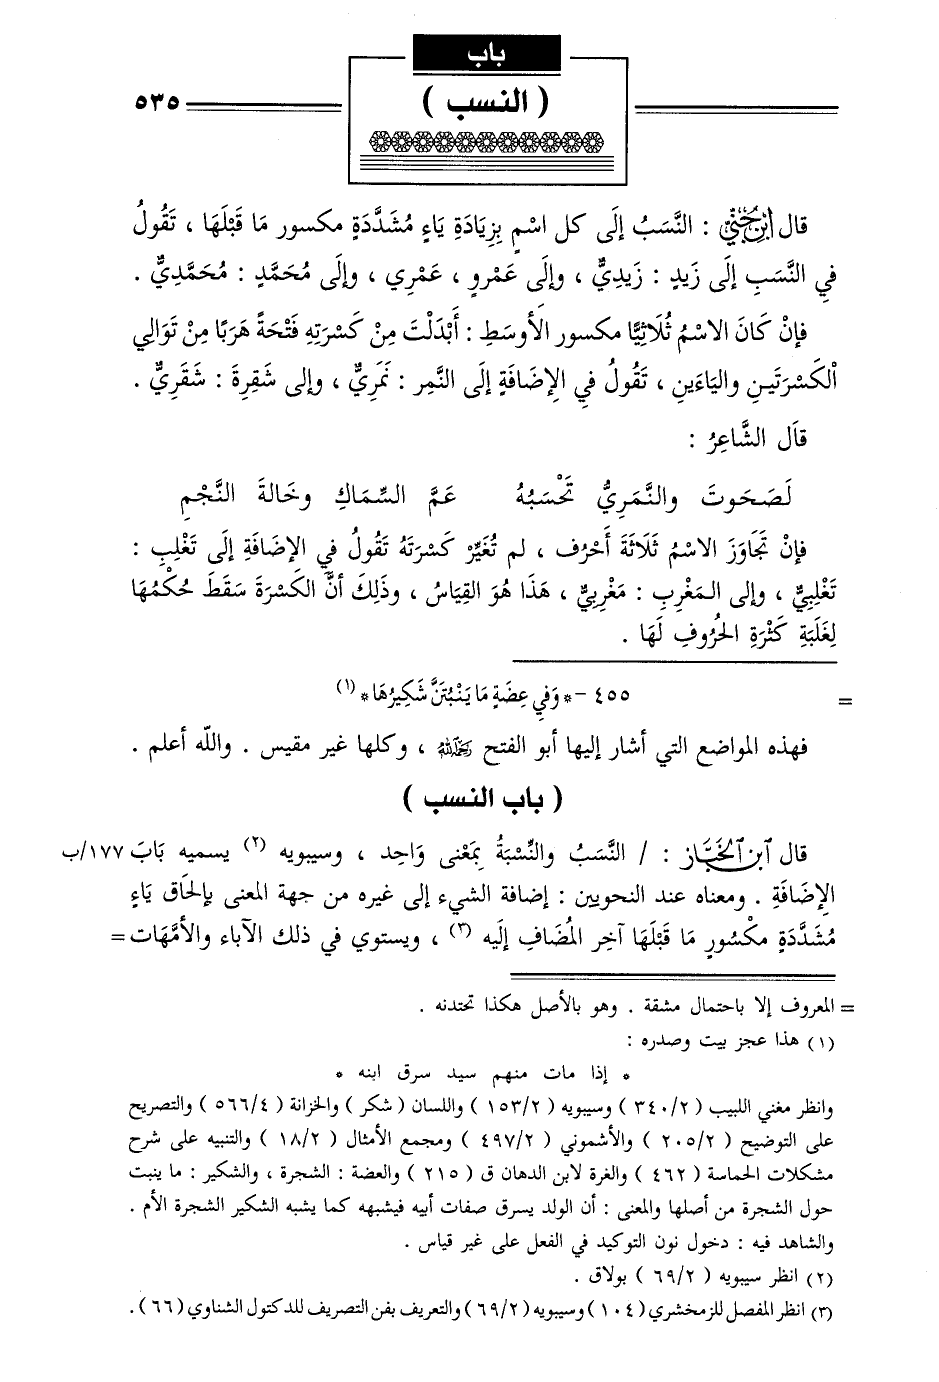 باب
( النسب )
٥٣٥
قال ابن جني : النَّسَبُ إلَى كل اسْمٍ بِزِيَادَةِ يَاءٍ مُشَدَّدَةٍ مكسور مَا قَبْلَهَا ، تَقُولُ
في النَّسَبِ إلَى زَيدٍ : زَيدِيٌّ ، وإلَى عَمْرٍو ، عَمْرِي ، وإلَى مُحَمَّدٍ : مُحَمَّدِيٌّ .
فإنْ كَانَ الاسْمُ ثُلَاثِيًّا مكسور الأَوسَطِ : أَبْدَلْتَ مِنْ كَسْرَتِهِ فَتْحَةً هَرَبًا مِنْ تَوَالِي
الْكَسْرَتَينِ والْيَاءَينِ ، تَقُولُ في الإِضَافَةِ إلَى النَّمِر : نَمَرِيٌّ ، وإلى شَقِرةَ : شَقَرِيٌّ .
قاَل الشَّاعِرُ :
لَصَحَوتَ والنَّمَرِيُّ تَحْسَبُهُ عَمَّ السِّمَاكِ وخَالةَ النَّجْمِ
فإنْ تَجَاوَزَ الاسْمُ ثَلَاثَةَ أَحْرُف ، لم تُغَيِّرْ كَسْرَتَهُ تَقُولُ في الإضَافَةِ إلَى تَغْلِبِ :
تَغْلِبِيٌّ ، وإلى المَغْرِبِ : مَغْرِبِيٌّ ، هَذَا هُوَ القِيَاسُ ، وذَلِكَ أنَّ الكَسْرَةَ سَقَطَ حُكْمُهَا
لِغَلَبَةِ كَثْرَةِ الحُرُوفِ لَهَا .
= ٤٥٥ - * وَفي عِضَةٍ مَا يَنْبُتَنَّ شَكِيرُهَا * (١)
فهذه المواضع التي أشار إليها أبو الفتح رحمه الله ، وكلها غير مقيس . والله أعلم .
( باب النسب )
قال ابن الخباز : / النَّسَبُ والنِّسْبَةُ بِمَعْنى وَاحِد ، وسيبويه (٢) يسميه بَابَ ١٧٧/ب
الإضَافَةِ . ومعناه عند النحويين : إضافة الشيء إلى غيره من جهة المعنى بإلحَاق يَاءٍ
مُشَدَّدَةٍ مكْسُورٍ مَا قَبْلَهَا آخِر المُضَافِ إلَيه (٣) ، ويستوي في ذلك الآباء والأمَّهَات =
= المعروف إلا باحتمال مشقة . وهو بالأصل هكذا تحتدنه .
(١) هذا عجز بيت وصدره :
* إذا مات منهم سيد سرق ابنه *
وانظر مغني اللبيب ( ٣٤٠/٢ ) وسيبويه ( ١٥٣/٢ ) واللسان ( شكر ) والخزانة ( ٥٦٦/٤ ) والتصريح
على التوضيح ( ٢٠٥/٢ ) والأشموني ( ٤٩٧/٢ ) ومجمع الأمثال ( ١٨/٢ ) والتنبيه على شرح
مشكلات الحماسة ( ٤٦٢ ) والغرة لابن الدهان ق ( ٢١٥ ) والعضة : الشجرة ، والشكير : ما ينبت
حول الشجرة من أصلها والمعنى : أن الولد يسرق صفات أبيه فيشبهه كما يشبه الشكير الشجرة الأم .
والشاهد فيه : دخول نون التوكيد في الفعل على غير قياس .
(٢) انظر سيبويه ( ٦٩/٢ ) بولاق .
(٣) انظر المفصل للزمخشري ( ١٠٤ ) وسيبويه ( ٦٩/٢ ) والتعريف بفن التصريف للدكتول الشناوي ( ٦٦ ) .